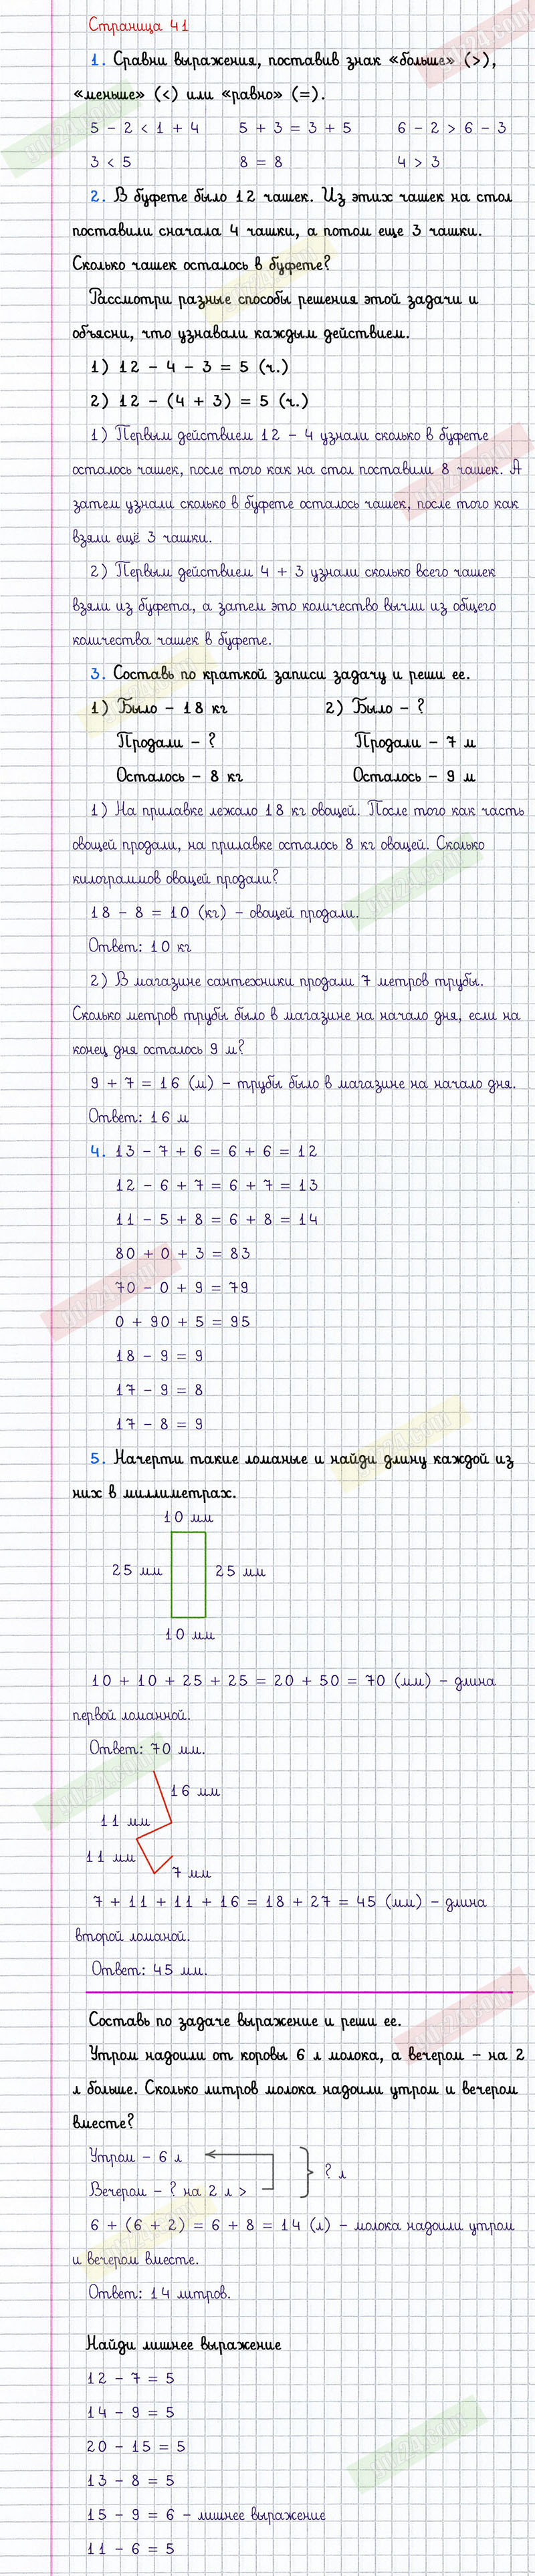 Страница 41
1. Сравни выражения, поставив знак «больше» (>),
«меньше» (<) или «равно» (=).
5 - 2 < 1 + 4 5 + 3 = 3 + 5 6 - 2 > 6 - 3
3 < 5 8 = 8 4 > 3
2. В буфете было 12 чашек. Из этих чашек на стол
поставили сначала 4 чашки, а потом еще 3 чашки.
Сколько чашек осталось в буфете?
Рассмотри разные способы решения этой задачи и
объясни, что узнавали каждым действием.
1) 12 - 4 - 3 = 5 (ч.)
2) 12 - (4 + 3) = 5 (ч.)
1) Первым действием 12 - 4 узнали сколько в буфете
осталось чашек, после того как на стол поставили 8 чашек. А
затем узнали сколько в буфете осталось чашек, после того как
взяли ещё 3 чашки.
2) Первым действием 4 + 3 узнали сколько всего чашек
взяли из буфета, а затем это количество вычли из общего
количества чашек в буфете.
3. Составь по краткой записи задачу и реши ее.
1) Было - 18 кг 2) Было - ?
Продали - ? Продали - 7 м
Осталось - 8 кг Осталось - 9 м
1) На прилавке лежало 18 кг овощей. После того как часть
овощей продали, на прилавке осталось 8 кг овощей. Сколько
килограммов овощей продали?
18 - 8 = 10 (кг) - овощей продали.
Ответ: 10 кг
2) В магазине сантехники продали 7 метров трубы.
Сколько метров трубы было в магазине на начало дня, если на
конец дня осталось 9 м?
9 + 7 = 16 (м) - трубы было в магазине на начало дня.
Ответ: 16 м
4. 13 - 7 + 6 = 6 + 6 = 12
12 - 6 + 7 = 6 + 7 = 13
11 - 5 + 8 = 6 + 8 = 14
80 + 0 + 3 = 83
70 - 0 + 9 = 79
0 + 90 + 5 = 95
18 - 9 = 9
17 - 9 = 8
17 - 8 = 9
5. Начерти такие ломаные и найди длину каждой из
них в миллиметрах.
10 мм
25 мм 25 мм
10 мм
10 + 10 + 25 + 25 = 20 + 50 = 70 (мм) - длина
первой ломанной.
Ответ: 70 мм.
16 мм
11 мм
11 мм
7 мм
7 + 11 + 11 + 16 = 18 + 27 = 45 (мм) - длина
второй ломаной.
Ответ: 45 мм.
Составь по задаче выражение и реши ее.
Утром надоили от коровы 6 л молока, а вечером - на 2
л больше. Сколько литров молока надоили утром и вечером
вместе?
Утром - 6 л
? л
Вечером - ? на 2 л >
6 + (6 + 2) = 6 + 8 = 14 (л) - молока надоили утром
и вечером вместе.
Ответ: 14 литров.
Найди лишнее выражение
12 - 7 = 5
14 - 9 = 5
20 - 15 = 5
13 - 8 = 5
15 - 9 = 6 - лишнее выражение
11 - 6 = 5